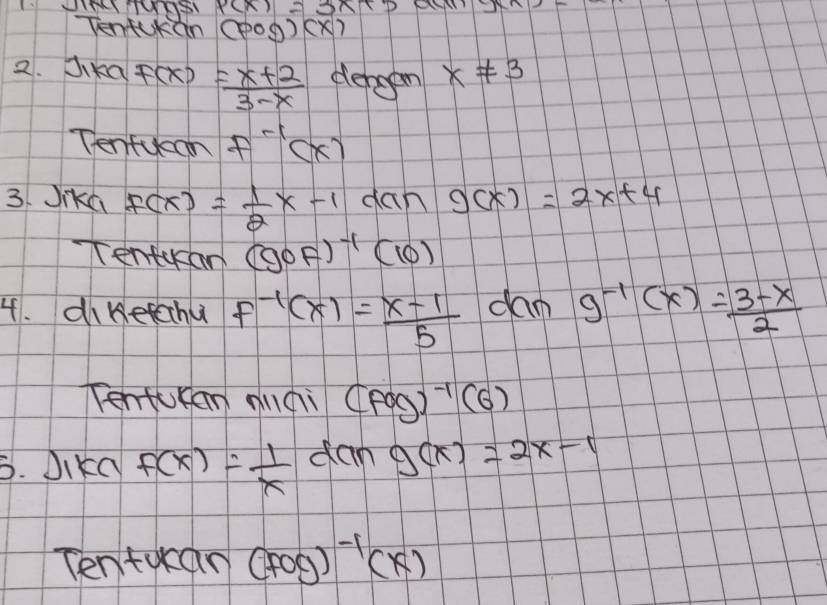 1. Jika fungsi p(x) = 3x+5 dan g(x) =
Tentukan (pog)(x)
2. Jika f(x) = x+2/3-x dengan x ≠ 3
Tentukan f⁻¹(x)
3. Jika f(x) = 1/2 x - 1 dan g(x) = 2x+4
Tentukan (gof)⁻¹(10)
4. diketahui f⁻¹(x) = x-1/5 dan g⁻¹(x) = 3-x/2
Tentukan nilai (fog)⁻¹(6)
5. Jika f(x) = 1/x dan g(x) = 2x-1
Tentukan (fog)⁻¹(x)